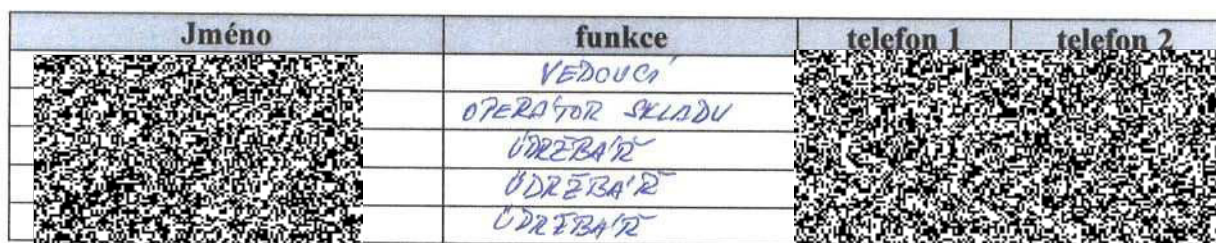 Jméno funkce telefon 1 telefon 2
VEDOUCÍ
OPERÁTOR SKLADU
ÚDRŽBÁŘ
ÚDRŽBÁŘ
ÚDRŽBÁŘ